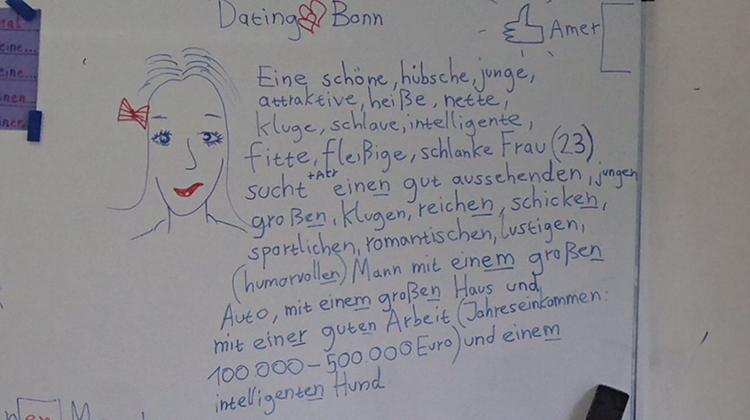 Dating Bonn
Amer
eine...
eine...
Eine schöne, hübsche, junge,
attraktive, heiße, nette,
kluge, schlaue, intelligente,
fitte, fleißige, schlanke Frau (23)
sucht +Akk einen gut aussehenden, jungen
großen, klugen, reichen, schicken,
sportlichen, romantischen, lustigen,
(humorvollen) Mann mit einem großen
Auto, mit einem großen Haus und
mit einer guten Arbeit (Jahreseinkommen:
100.000 – 500.000 Euro) und einem
intelligenten Hund